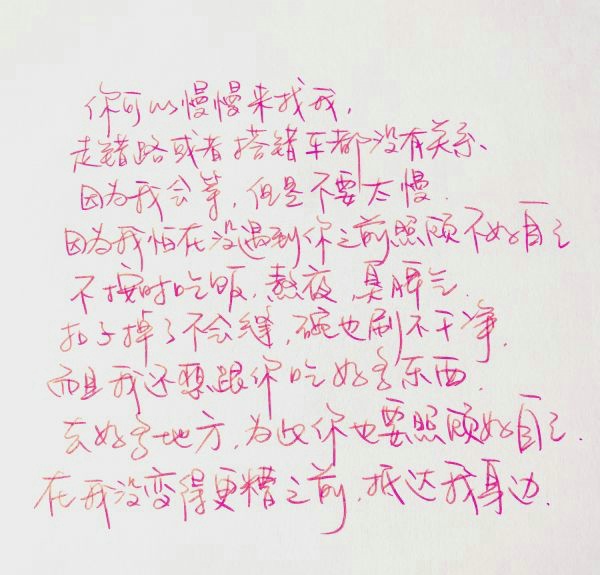 你可以慢慢来找我，
走错路或者搭错车都没有关系、
因为我会等，但是不要太慢.
因为我怕在没遇到你之前照顾不好自己
不按时吃饭.熬夜.臭脾气.
扣子掉了不会缝，碗也刷不干净.
而且我还要跟你吃好多东西.
去好多地方，为此你也要照顾好自己.
在我没变得更糟之前.抵达我身边.